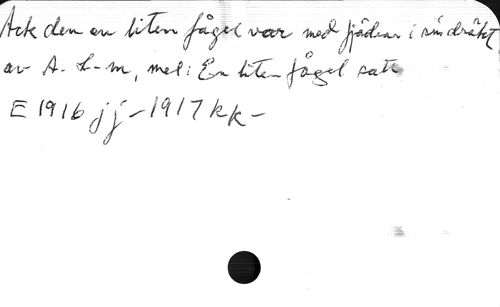 Ack den en liten fågel var med fjädrar i sin dräkt
av A. L-m, mel: En liten fågel satt
E 1916 jj - 1917 kk -